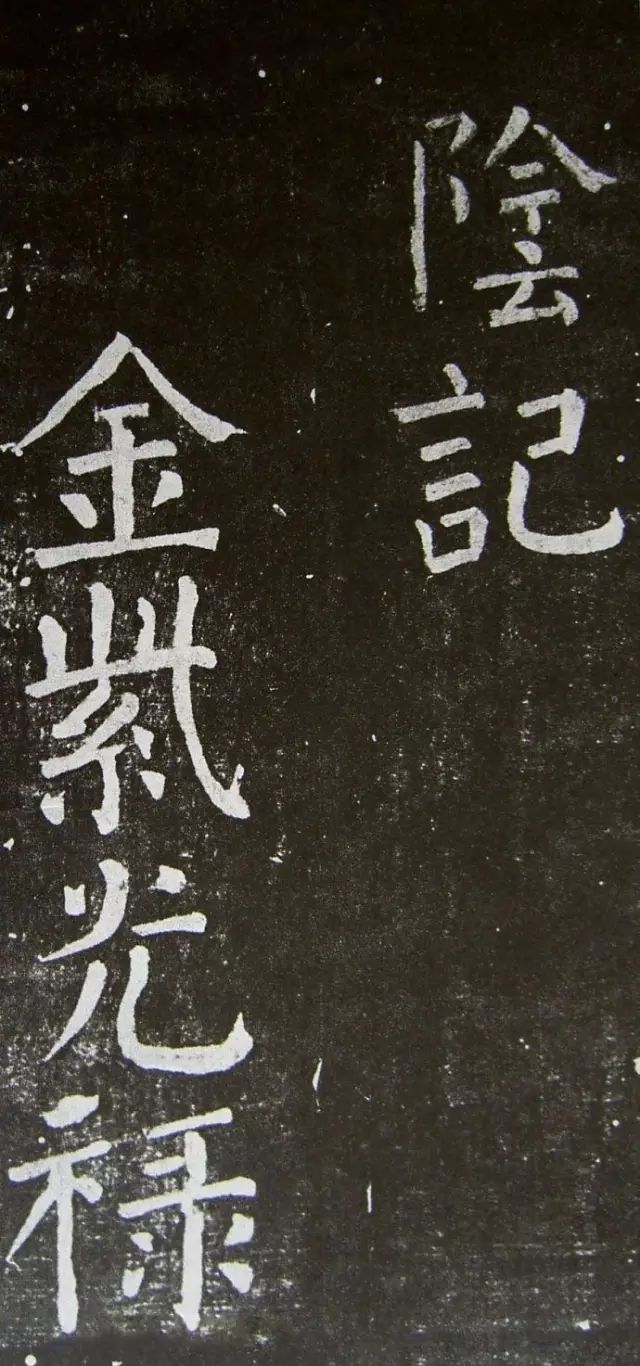 陰記
金紫光祿